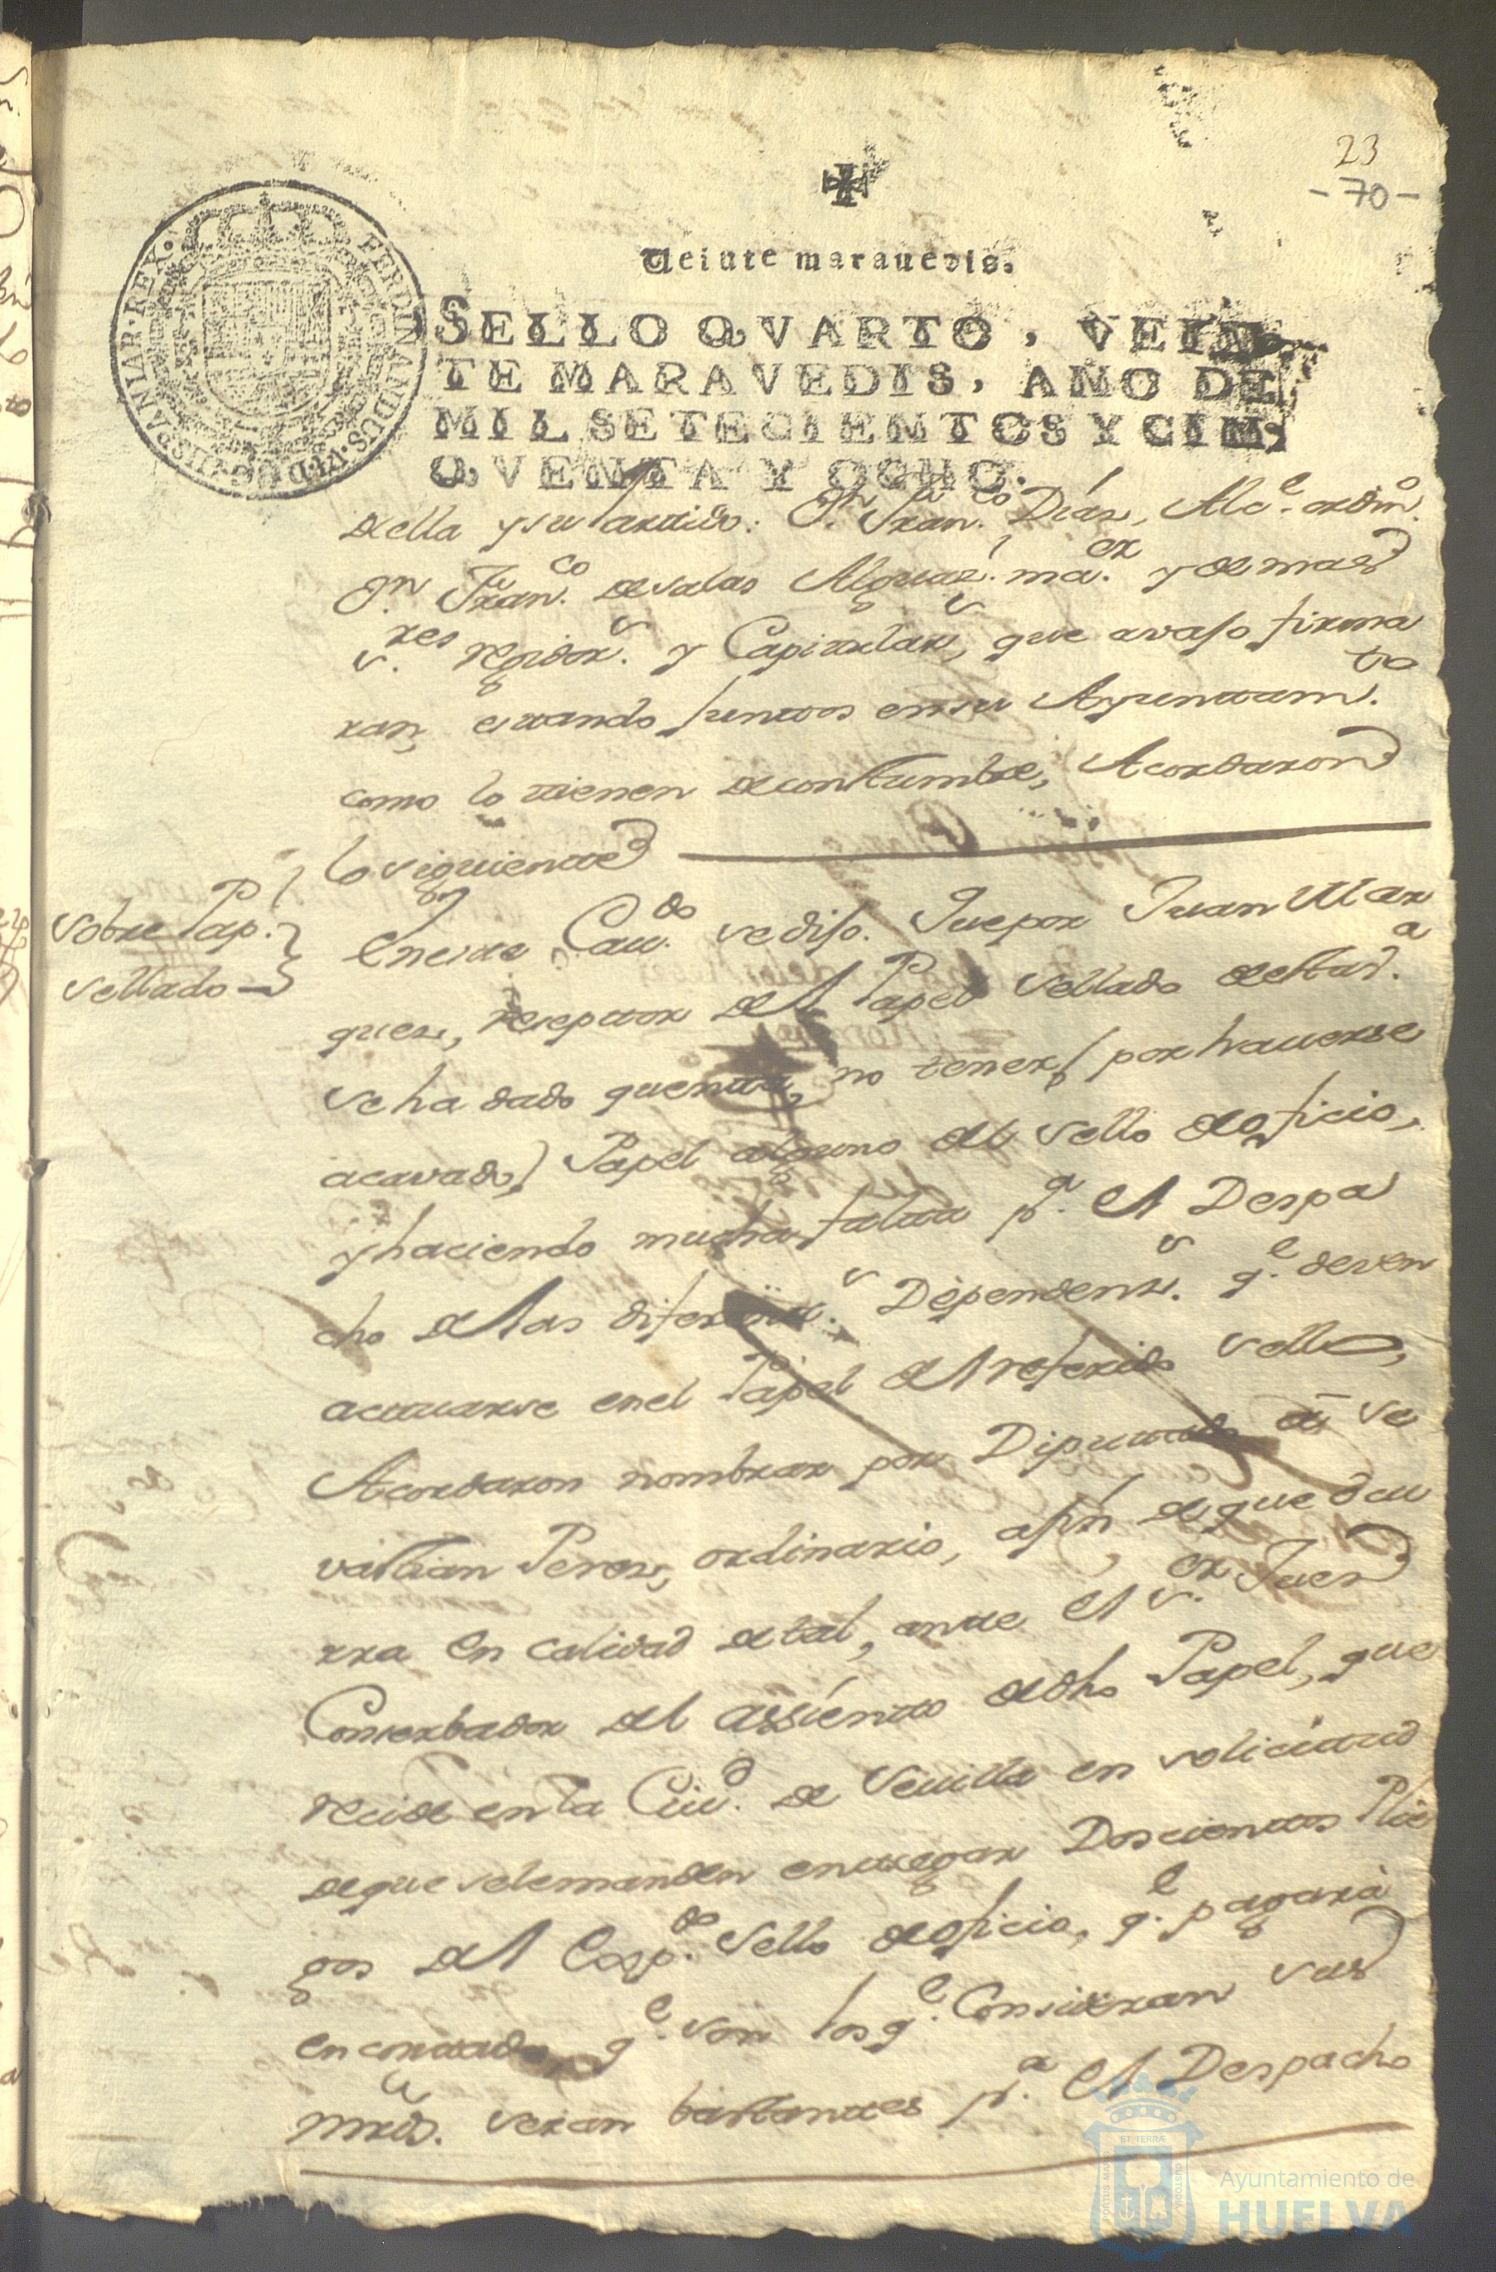 23
-70-
Veinte maravedis.
SELLO QVARTO, VEIN
TE MARAVEDIS, AÑO DE
MIL SETECIENTOS Y CIN
QVENTA Y OCHO.
FERDINANDUS·VI·D·G·HIS
PANIAR·REX·
della y su partido: Dn. Franco. Díaz, Alce. ordino.
Dn. Franco. de salas Alguazl. maor. y demas
sres. regidors. y Capitulars, que avajo firma
ran, estando juntos en su Ayuntamto.
como lo tienen de costumbre, Acordaron
lo siguiente
Sobre Pap.
sellado
En este Cavdo. se dijo. Que por Juan Mar
quez, reseptor del Papel sellado desta va.
se ha dado quenta, no tener (por haverse
acavado) Papel alguno del sello de oficio,
y haciendo mucha falta pa. el Despa
cho de las diferents. Dependens. qe. deven
actuarse en el Papel del referido sello,
Acordaron nombrar por Diputado a Se
vastian Perez, ordinario, a fin de que ocu
rra en calidad de tal, ante el sor. Juez
Conserbador del assiento de dho Papel, que
recide en la Ciud. de Sevilla en solicitud
de que se le manden entregar Doscientos Plie
gos del Expdo. sello de oficio, qe. pagará
en contado, qe. son los qe. Consideran sus
mrds. seran bastantes pa. el Despacho
Ayuntamiento de
HUELVA